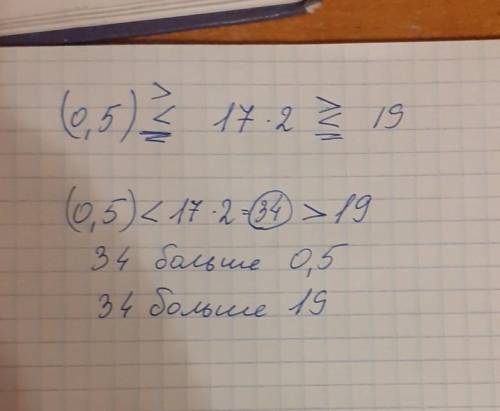 (0,5) >/</= 17·2 >/</= 19
(0,5) < 17·2=34 > 19
34 больше 0,5
34 больше 19